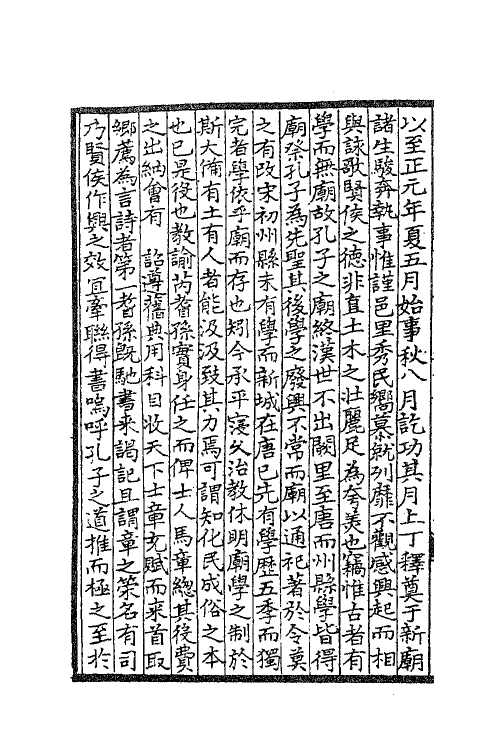 以至正元年夏五月始事秋八月訖功其月上丁釋奠于新廟
諸生駿奔執事惟謹邑里秀民嚮慕就列靡不觀感興起而相
與詠歌賢侯之德非直土木之壯麗足為夸美也竊惟古者有
學而無廟故孔子之廟終漢世不出闕里至唐而州縣學皆得
廟祭孔子為先聖其後學之廢興不常而廟以通祀著於令莫
之有改宋初州縣未有學而新城在唐已先有學歷五季而獨
完者學依乎廟而存也矧今承平寖久治教休明廟學之制於
斯大備有土有人者能汲汲致其力焉可謂知化民成俗之本
也已是役也教諭芮耆孫實身任之而俾士人馬章總其役費
之出納會有　詔遵舊典用科目收天下士章充賦而來首取
鄉薦為言詩者第一耆孫既馳書來謁記且謂章之策名有司
乃賢侯作興之效宜牽聯得書嗚呼孔子之道推而極之至於